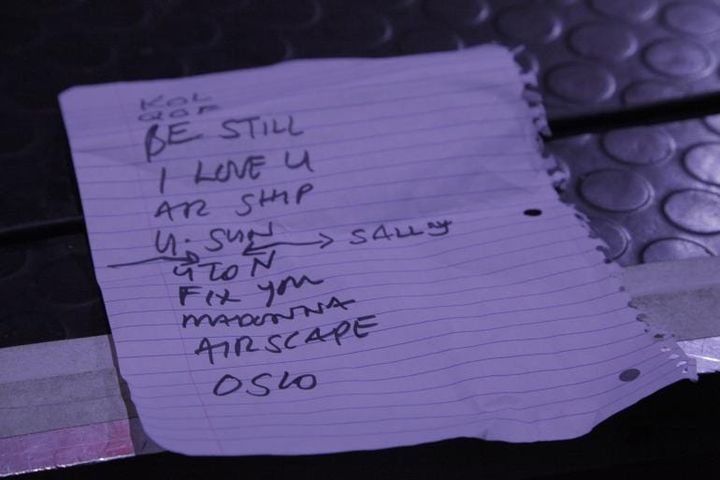 KOL
QOF
BE STILL
I LOVE U
AIR SHIP
U. SUN ↔ SALLY
4 TO N
FIX YOU
MADONNA
AIRSCAPE
OSLO